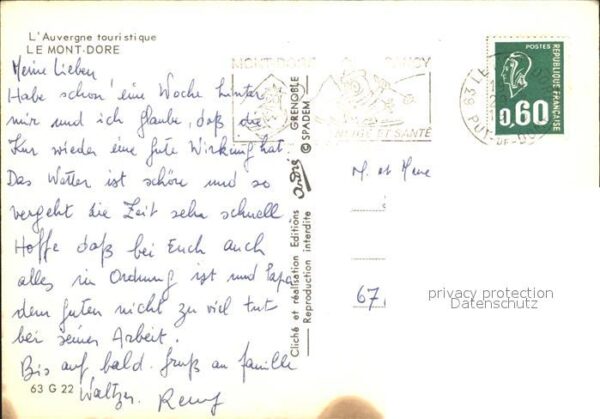 L'Auvergne touristique
LE MONT-DORE
Meine Lieben
Habe schon eine Woche hinter
mir und ich glaube, daß die
Kur wieder eine gute Wirkung hat.
Das Wetter ist schön und so
vergeht die Zeit sehr schnell
Hoffe daß bei Euch auch
alles in Ordnung ist und Papa
dem guten nicht zu viel tut
bei seiner Arbeit.
Bis auf bald. Gruß an familie
Waltzer. Remy
63 G 22
Cliché et réalisation Editions André GRENOBLE
Reproduction interdite © SPADEM
MONT-DORE SANCY
NEIGE ET SANTÉ
63 LE
PUY-DE-DOME
POSTES
REPUBLIQUE FRANÇAISE
0,60
M. et Mme
67.
privacy protection
Datenschutz